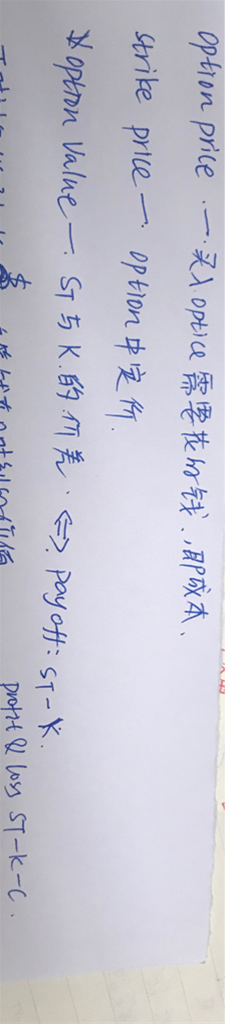 option price 一. 买入optice 需要花的钱, 即成本、
strike price 一. option 中定价.
option Value 一. ST 与 K 的价差. <=> Payoff: ST - K.
profit & loss ST-K-C.